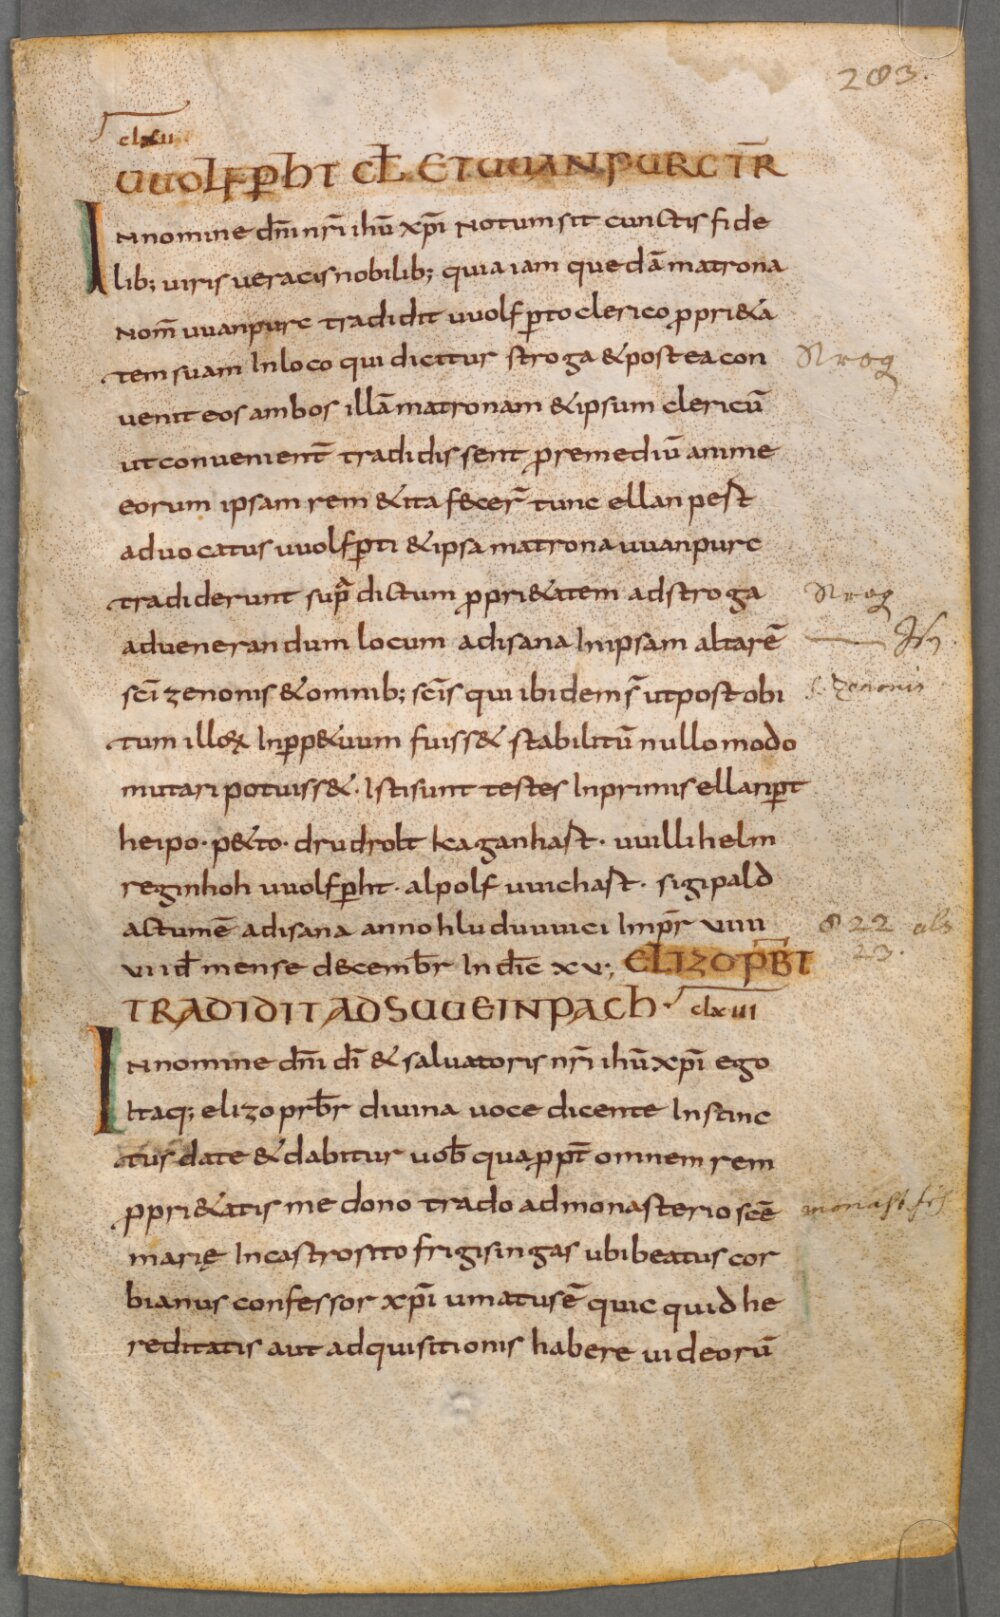 203.
clxii
UUOLFP̄HT CŁ ET UUANPURC TR̄
IN nomine dn̄i nr̄i ihū xp̄i Notum sit cunctis fide
lib; uiris ueracis nobilib; quia iam quedā matrona
nom̄ uuanpurc tradidit uuolfp̄to clerico ꝓpri&a
tem suam In loco qui dicitur stroga & postea con
Strog
uenit eos ambos illā matronam & ipsum clericū
ut conuenient̄ tradidissent ꝓ remediū anime
eorum ipsam rem & ita fecer̄ tunc ellanpest
aduocatus uuolfp̄ti & ipsa matrona uuanpurc
tradiderunt sup̄ dictum ꝓpri&atem ad stroga
Strog
ad uenerandum locum ad isana In ipsam altarē
Isn
sc̄i zenonis & omnib; sc̄is qui ibidem s̄ ut post obi
S. Zenonis
tum illoꝝ Inp̄p&uum fuiss& stabilitū nullo modo
mutari potuiss&. Isti sunt testes In primis ellanp̄t
heipo · p&to · drudrolt kaganhast · uuillihelm
reginhoh uuolfp̄ht · alpolf uuichast · sigipald
actum ē ad isana anno hluduuuici Imp̄r uiiii
822 als
uiid̄ mense decemb̄r Indic̄ xu; ELIZO PR̄BT
23.
TRADIDIT AD SUUEINPACh · clxiii
IN nomine dn̄i dī & saluatoris nr̄i ihū xp̄i ego
Itaq; elizo prb̄r diuina uoce dicente Instinc
tus date & dabitur uob̄ qua ꝓpt̄ omnem rem
ꝓpri&atis me dono trado ad monasterio scē
monast. fris
marię In castro sito frigisingas ubi beatus cor
bianus confessor xp̄i umatus ē quic quid he
reditatis aut adquisitionis habere uideorū